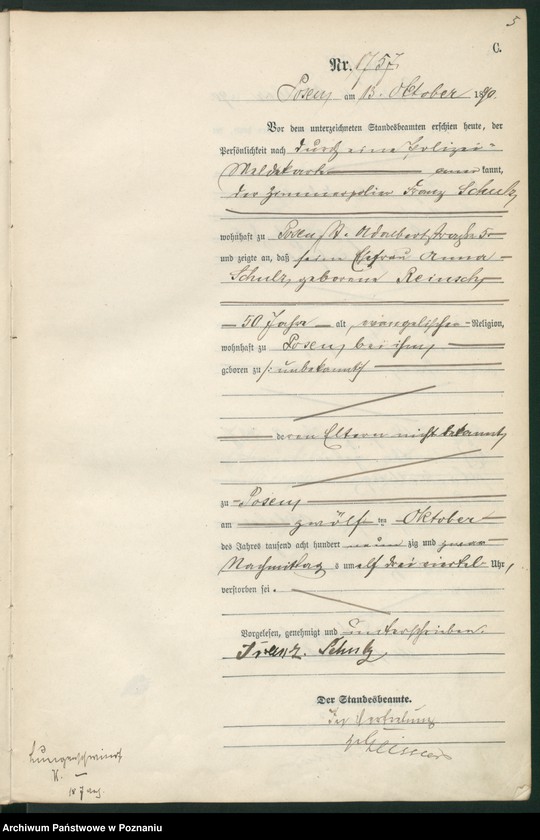 5
C.
Nr. 1757
Posen, am 13. Oktober 1890.
Vor dem unterzeichneten Standesbeamten erschien heute, der
Persönlichkeit nach durch eine Polizei-
Meldekarte anerkannt,
der Franz Schulz,
wohnhaft zu Posen, St. Adalbertstraße 5
und zeigte an, daß seine Ehefrau Anna
Schulz, geborene Reinsch,
50 Jahre alt, evangelischer Religion,
wohnhaft zu Posen, bei ihm,
geboren zu /: unbekannt
deren Eltern nicht bekannt,
zu Posen,
am zwölften Oktober
des Jahres tausend acht hundert neunzig und zwar
Nachmittag s um elf drei viertel Uhr,
verstorben sei.
Vorgelesen, genehmigt und unterschrieben.
Franz Schulz
Der Standesbeamte.
In Vertretung
Lungenschwindsucht
Archiwum Państwowe w Poznaniu